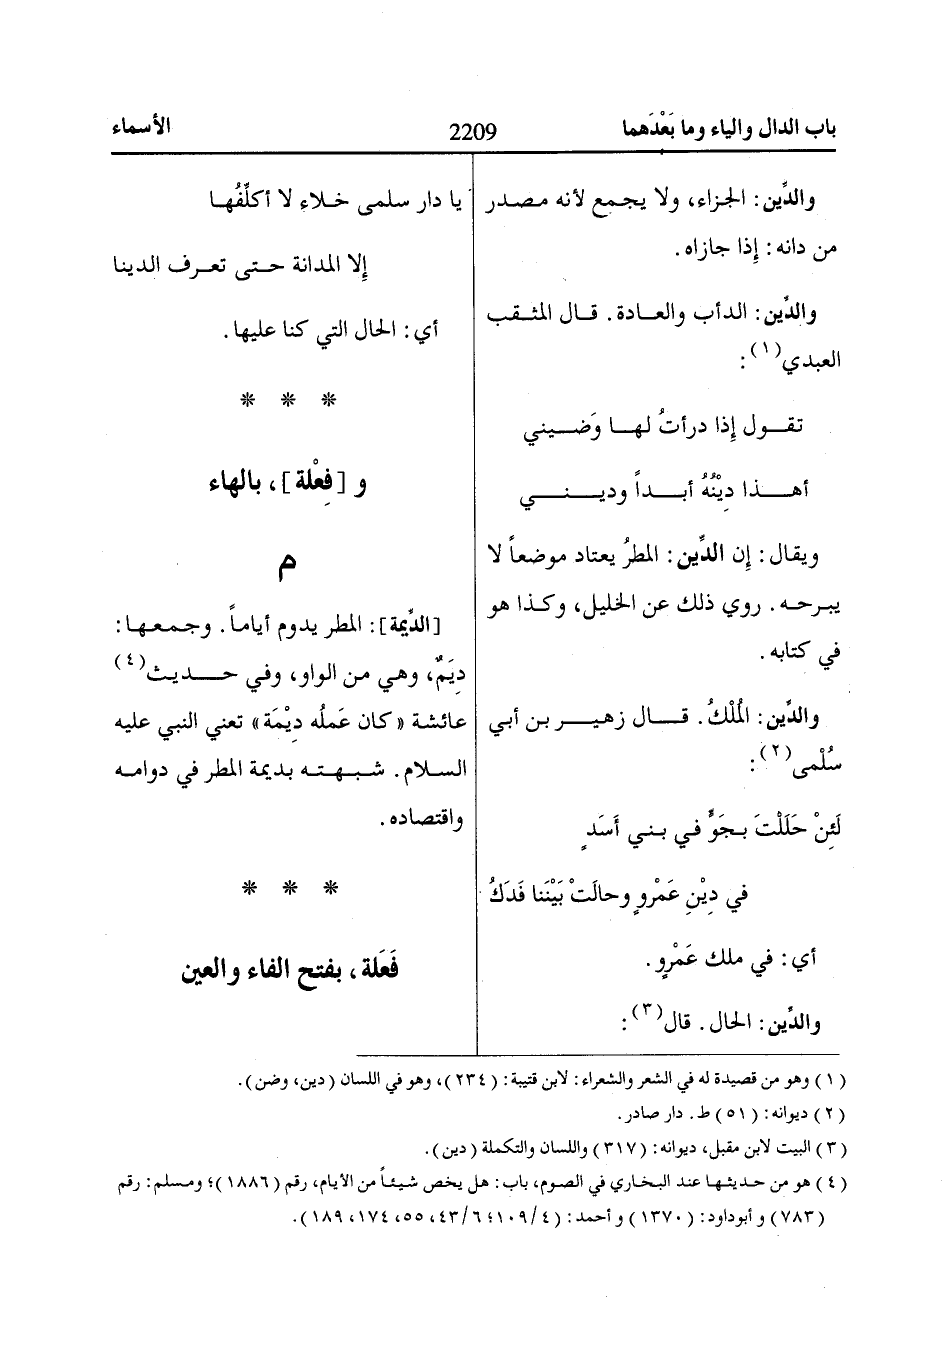 باب الدال والياء وما بَعْدَهما
2209
الأسماء
والدِّين: الجزاء، ولا يجمع لأنه مصدر
من دانه: إذا جازاه.
والدِّين: الدأب والعادة. قال المثقب
العبدي(١):
تقول إذا درأتُ لها وَضيني
أهذا دِيْنُهُ أبداً وديني
ويقال: إن الدِّين: المطرُ يعتاد موضعاً لا
يبرحه. روي ذلك عن الخليل، وكذا هو
في كتابه.
والدِّين: المُلْكُ. قال زهير بن أبي
سُلْمى(٢):
لَئِنْ حَلَلْتَ بجَوٍّ في بني أَسَدٍ
في دِيْنِ عَمْروٍ وحالَتْ بَيْنَنا فَدَكُ
أي: في ملك عَمْروٍ.
والدِّين: الحال. قال(٣):
يا دار سلمى خلاء لا أكلِّفُها
إلا المدانة حتى تعرف الدينا
أي: الحال التي كنا عليها.
* * *
و [فِعْلة]، بالهاء
م
[الدِّيمة]: المطر يدوم أياماً. وجمعها:
دِيَمٌ، وهي من الواو، وفي حديث(٤)
عائشة «كان عَملُه ديْمَة» تعني النبي عليه
السلام. شبهته بديمة المطر في دوامه
واقتصاده.
* * *
فَعَلة، بفتح الفاء والعين
(١) وهو من قصيدة له في الشعر والشعراء: لابن قتيبة: (٢٣٤)، وهو في اللسان (دين، وضن).
(٢) ديوانه: (٥١) ط. دار صادر.
(٣) البيت لابن مقبل، ديوانه: (٣١٧) واللسان والتكملة (دين).
(٤) هو من حديثها عند البخاري في الصوم، باب: هل يخص شيئاً من الأيام، رقم (١٨٨٦)؛ ومسلم: رقم
(٧٨٣) و أبوداود: (١٣٧٠) و أحمد: (١٠٩/٤؛ ٤٣/٦، ٥٥، ١٧٤، ١٨٩).